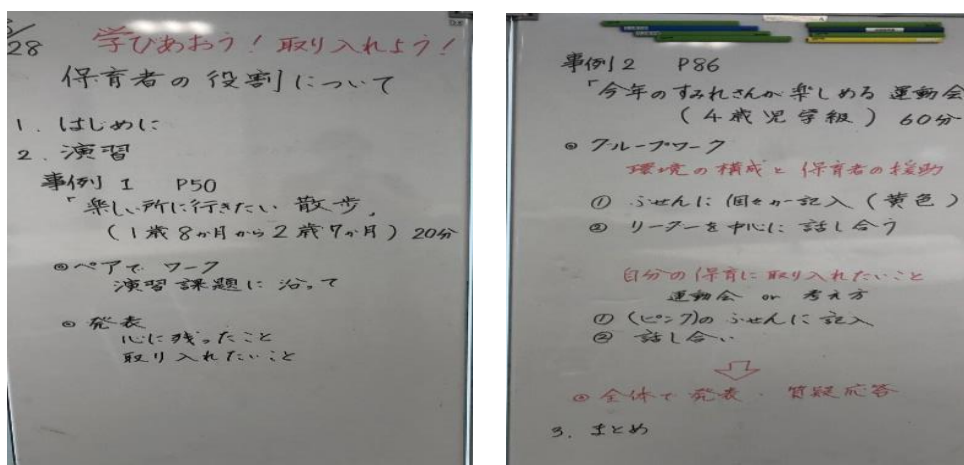 28 学びあおう！取り入れよう！
保育者の役割について
1. はじめに
2. 演習
事例1 P50
「楽しい所に行きたい 散歩」
(1歳8か月から2歳7か月) 20分
◎ペアでワーク
演習課題に沿って
◎発表
心に残ったこと
取り入れたいこと
事例2 P86
「今年のすみれさんが楽しめる 運動会
(4歳児学級) 60分
◎グループワーク
環境の構成と保育者の援助
① ふせんに個々が記入 (黄色)
② リーダーを中心に話し合う
自分の保育に取り入れたいこと
運動会 or 考え方
① (ピンク)のふせんに記入
② 話し合い
◎全体で発表・質疑応答
3. まとめ